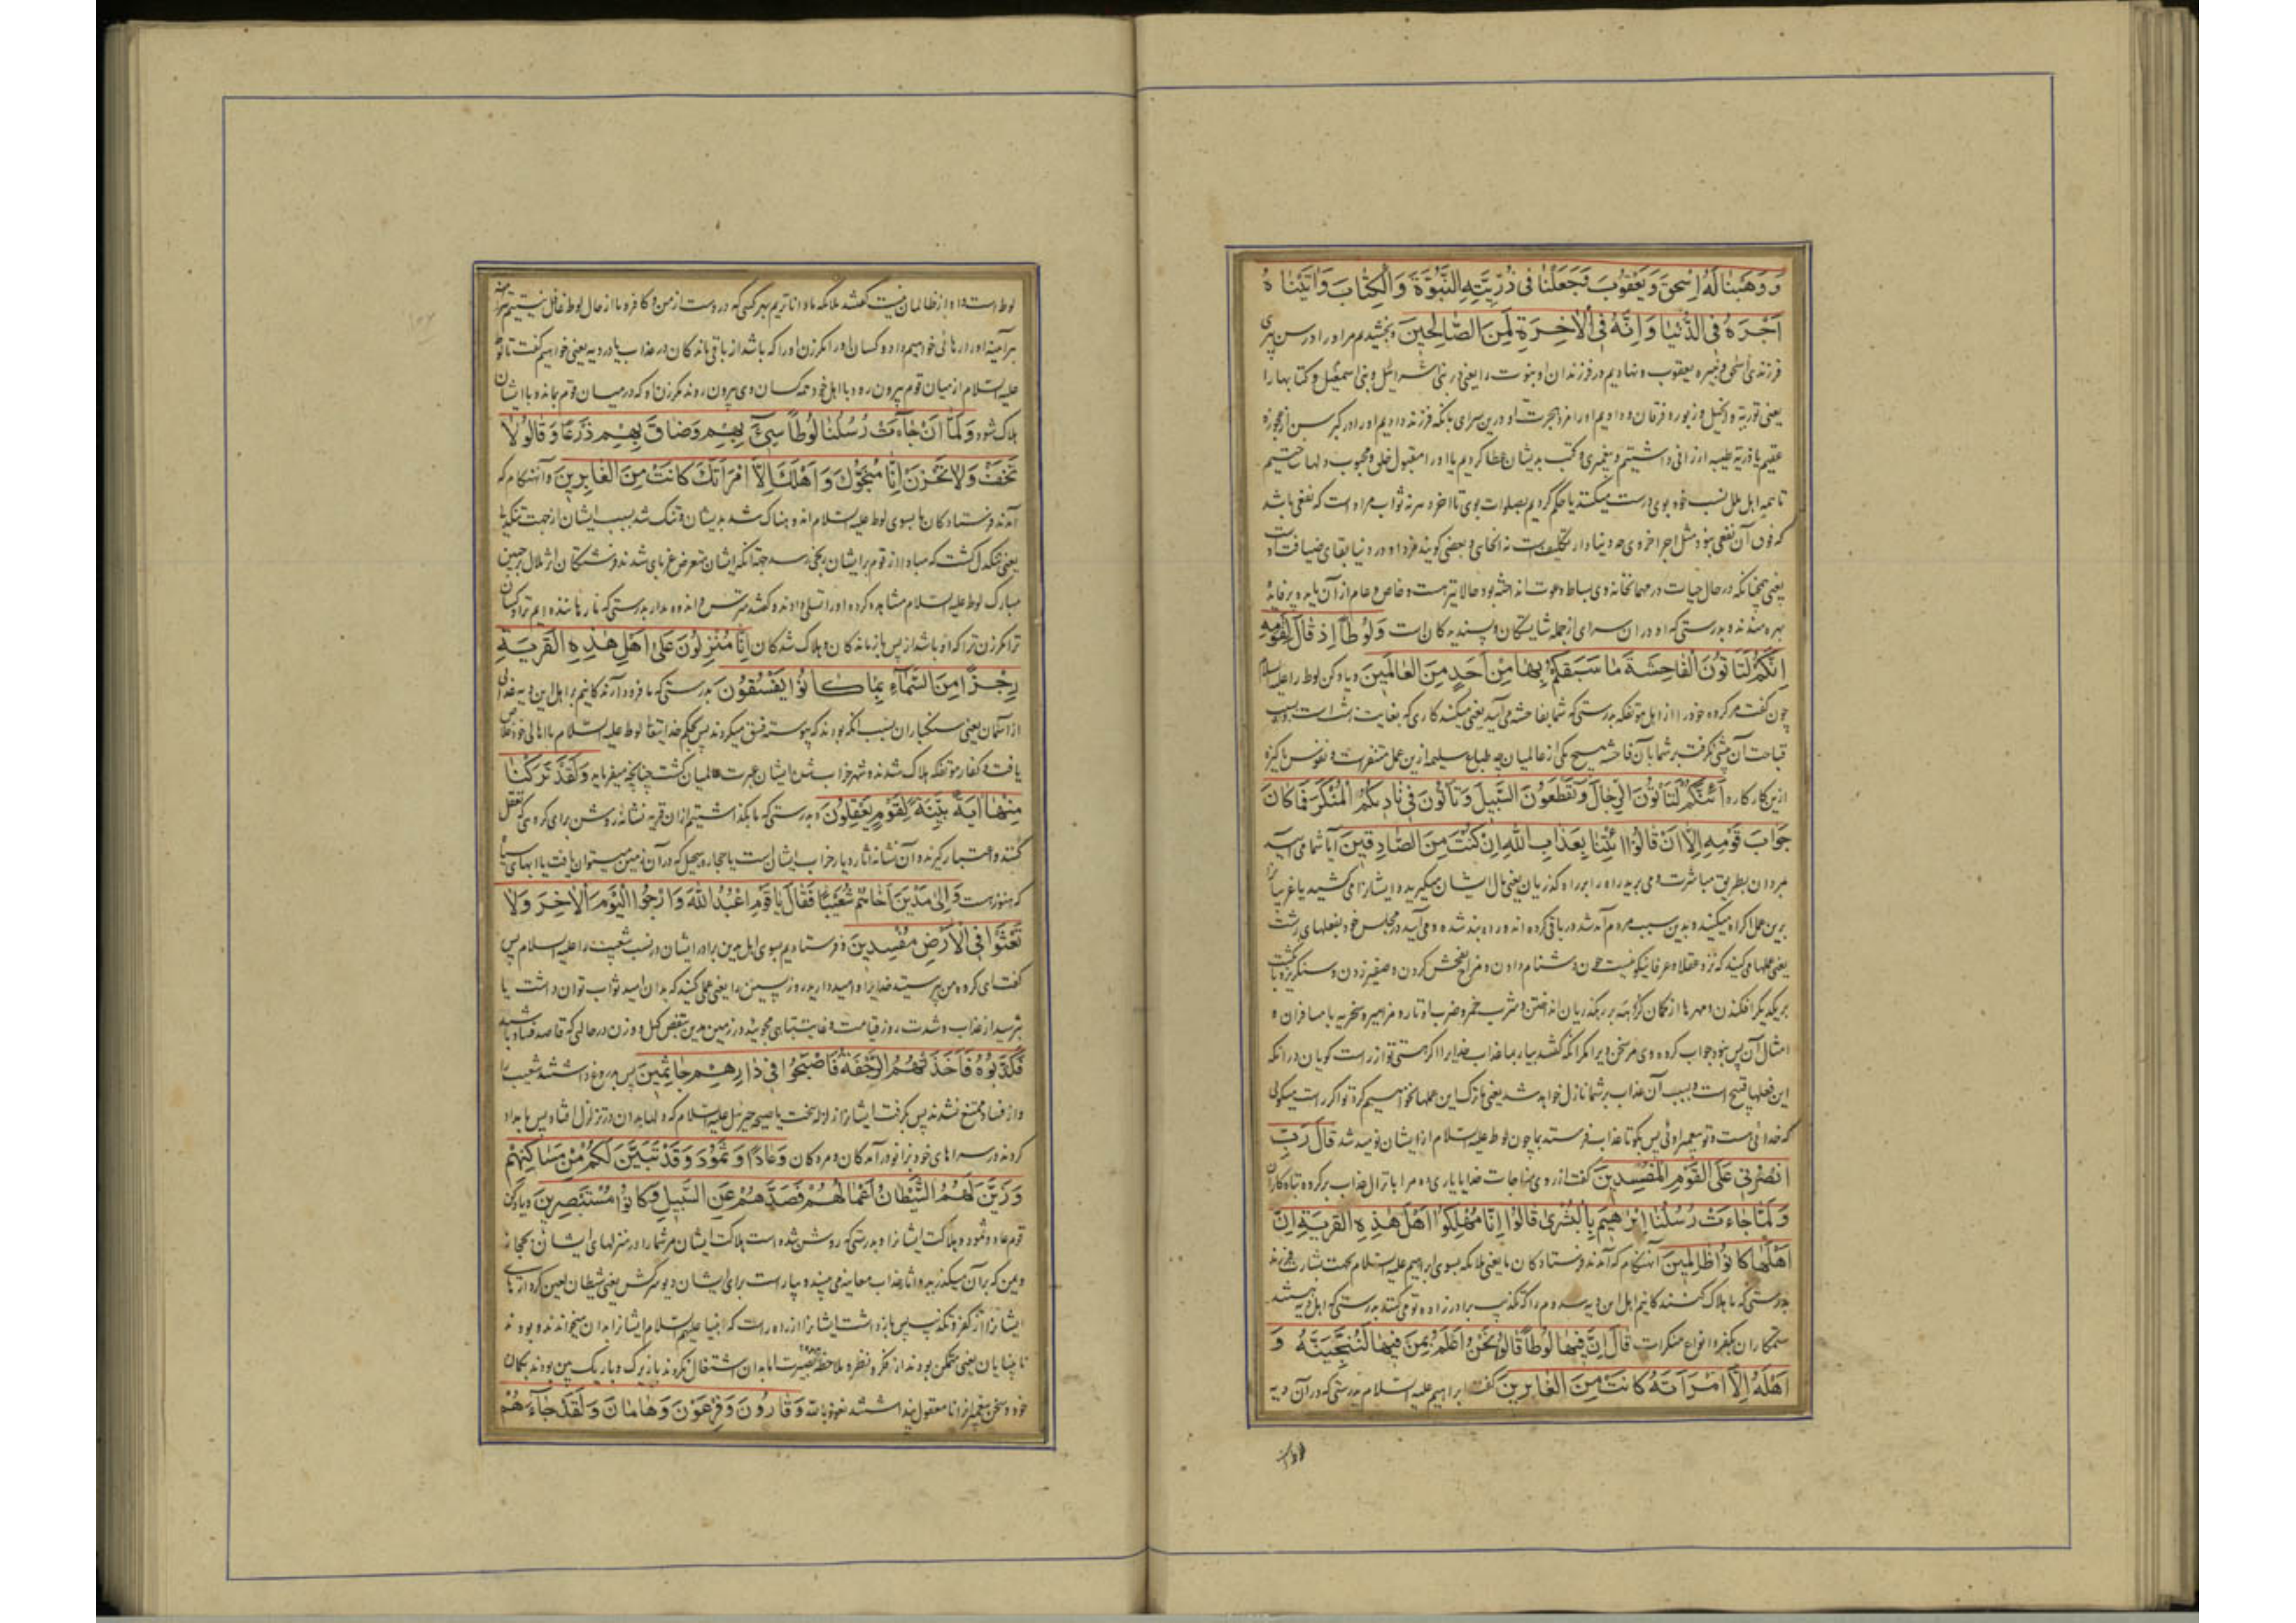 وَ وَهَبْنا لَهُ اِسْحقَ وَ یَعْقُوبَ وَجَعَلْنا فی ذُرِّیَّتِهِ النُّبُوَّةَ وَالْکِتابَ وَاتَیْناهُ
اَجْرَهُ فِی الدُّنْیا وَ اِنَّهُ فِی الْاخِرَةِ لَمِنَ الصّالِحینَ و بخشیدیم مر او را در سن پیری
فرزندی اسحق و نبیره یعقوب و نهادیم در فرزندان او نبوت را یعنی در بنی اسرائیل و بنی اسمعیل و کتابها را
یعنی توریة و انجیل و زبور و فرقان و دادیم او را مزد هجرت او درین سرای بانکه فرزند دادیم او را در کبر سن از عجوزه
عقیم یا ذریه طیبه ارزانی داشتیم و پیغمبری و کتب بدیشان عطا کردیم یا او را مقبول خلق و محبوب دلها ساختیم
تا همه اهل ملل نسب خود بوی درست میکنند یا حکم کردیم بصلوات بوی تا اخر و سر نه ثواب مراد است که نفعی باشد
که فوق آن نفعی نبود مثل اجر اخروی چه دنیا دار تکلیفست و بعضی کویند مزد او در دنیا بقای ضیافت اوست
یعنی همچنانکه در حال حیات در مهمانخانه وی بساط دعوت انداخته بود حالا نیز هست و خاص و عام از آن مایده پرفایده
بهره مندند و بدرستی که او در ان سرای از جمله شایستکان و پسندیدکان است وَلُوطاً اِذْ قالَ لِقَوْمِهِ
اِنَّکُمْ لَتَاْتُونَ الْفاحِشَةَ ما سَبَقَکُمْ بِها مِنْ اَحَدٍ مِنَ الْعالَمینَ و یاد کن لوط را علیه السلام
چون گفت مر کروه خود را از اهل مؤتفکه بدرستی که شما بفاحشه می آیید یعنی میکنید کاری که بغایت زشت است
قباحت آن پیشی نکرفت بر شما بآن فاحشه هیچ یکی از عالمیان چه طباع سلیمه ازین عمل متنفر است و نفوس پاکیزه
ازین کار کاره اَئِنَّکُمْ لَتَاْتُونَ الرِّجالَ وَتَقْطَعُونَ السَّبیلَ وَتَاْتُونَ فی نادیکُمُ الْمُنْکَرَ فَما کانَ
جَوابَ قَوْمِهِ اِلّا اَنْ قالُوا ائْتِنا بِعَذابِ اللّهِ اِنْ کُنْتَ مِنَ الصّادِقینَ آیا شما می آیید
بمردان بطریق مباشرت و می برید راه را بر راه گذریان یعنی مال ایشان میگیرید و ایشانرا میکشید یا غربا را
برین عمل اکراه میکنید و بدین سبب مردم آمد شد در باقی کرده اند و راه بند شده و می آیید در مجلس خود بفعلهای زشت
یعنی عملها میکنید که نزد عقلا و عرفا نیکو نیست چون دشنام دادن و مزاح بفحش کردن و صفیر زدن و سنکریزه بانکشت
بر یکدیگر افکندن و مهرها از کمان کروهه بر رهگذریان انداختن و شرب خمر و ضرب اوتار و مزامیر و سخریه با مسافران و
امثال آن پس نبود جواب کروه وی مر سخن ویرا مکر آنکه گفتند بیار بما عذاب خدایرا اگر هستی تو از راست کویان در انکه
این فعلها قبیح است و بسبب آن عذاب بر شما نازل خواهد شد یعنی ما ترک این عملها نخواهیم کرد تو اگر راست میکوئی
که خدائی هست و تو پیغمبر اوئی پس بکو تا عذاب فرستد بما چون لوط علیه السلام از ایشان نومید شد قالَ رَبِّ
انْصُرْنی عَلَی الْقَوْمِ الْمُفْسِدینَ گفت از روی مناجات خدایا یاری ده مرا بانزال عذاب بر کروه تباه کاران
وَ لَمّا جاءَتْ رُسُلُنا اِبْرهیمَ بِالْبُشْری قالُوا اِنّا مُهْلِکُوا اَهْلِ هذِهِ الْقَرْیَةِ اِنَّ
اَهْلَها کانُوا ظالِمینَ آنهنکام که آمدند فرستادکان ما یعنی ملائکه بسوی ابراهیم علیه السلام بجهت بشارت فرزند
بدرستی که ما هلاک کنندکانیم اهل این دیه سدوم را که تکذیب برادرزاده تو میکنند بدرستی که اهل دیه هستند
ستمکاران بکفر و انواع منکرات قالَ اِنَّ فیها لُوطاً قالُوا نَحْنُ اَعْلَمُ بِمَنْ فیها لَنُنَجِّیَنَّهُ وَ
اَهْلَهُ اِلَّا امْرَاَتَهُ کانَتْ مِنَ الْغابِرینَ گفت ابراهیم علیه السلام بدرستی که در آن دیه
لوط است و او از ظالمان نیست گفتند ملائکه ما داناتریم بهر کسی که در وست از مؤمن و کافر و ما از حال لوط غافل نیستیم
هر آینه او را رهائی خواهیم داد و کسان او را مکر زن او را که باشد از باقی ماندکان در عذاب یا در دیه یعنی خواهیم گفت تا لوط
علیه السلام از میان قوم بیرون رود با اهل خود همه کسان وی بیرون روند مکر زن او که در میان قوم بماند و با ایشان
هلاک شود وَلَمّا اَنْ جاءَتْ رُسُلُنا لُوطاً سیءَ بِهِمْ وَضاقَ بِهِمْ ذَرْعاً وَ قالُوا لا
تَخَفْ وَلا تَحْزَنْ اِنّا مُنَجُّوکَ وَ اَهْلَکَ اِلَّا امْرَاَتَکَ کانَتْ مِنَ الْغابِرینَ و آنهنکام که
آمدند فرستادکان ما بسوی لوط علیه السلام اندوهناک شد بدیشان و تنک شد بسبب ایشان از جهت تنکدلی
یعنی تنکدل گشت که مبادا از قوم برایشان رنجی رسد چه آنکه ایشان متعرض غربا می شدند و فرشتکان از ملال جبین
مبارک لوط علیه السلام مشاهده کرده او را تسلی دادند و گفتند مترس و اندوه مدار بدرستی که ما رهاننده ایم ترا و کسان
ترا مکر زن ترا که او باشد از پس بازماندکان و هلاک شدکان اِنّا مُنْزِلُونَ عَلی اَهْلِ هذِهِ الْقَرْیَةِ
رِجْزاً مِنَ السَّماءِ بِما کانُوا یَفْسُقُونَ بدرستی که ما فرود آرندکانیم بر اهل این دیه عذابی
از آسمان یعنی سنکباران بسبب آنکه بودند که پیوسته فسق میکردند پس بحکم خدایتعالی لوط علیه السلام با اهالی خود خلاص
یافت و کفار مؤتفکه هلاک شدند و شهر خراب شد ایشان عبرت عالمیان گشت چنانچه میفرماید وَلَقَدْ تَرَکْنا
مِنْها ایَةً بَیِّنَةً لِقَوْمٍ یَعْقِلُونَ و بدرستی که ما بگذاشتیم از ان قریه نشانه روشن برای کروهی که تعقل
کنند و اعتبار کیرند و آن نشانه اثار دیار خراب ایشان است یا حجاره سجیل که در آن زمین میتوان یافت یا ابهای سیاه
که هنوز هست وَ اِلی مَدْیَنَ اَخاهُمْ شُعَیْباً فَقالَ یا قَوْمِ اعْبُدُوا اللّهَ وَ ارْجُوا الْیَوْمَ الْاخِرَ وَلا
تَعْثَوْا فِی الْاَرْضِ مُفْسِدینَ و فرستادیم بسوی اهل مدین برادر ایشان در نسب شعیب را علیه السلام پس
گفت ای کروه من بپرستید خدایرا و امید دارید روز پسین را یعنی عملی کنید که بدان امید ثواب توان داشت یا
بترسید از عذاب و شدت روز قیامت و غایت تباهی مجوئید در زمین مدین بنقص کیل و وزن در حالتی که قاصد فساد باشید
فَکَذَّبُوهُ فَاَخَذَتْهُمُ الرَّجْفَةُ فَاَصْبَحُوا فی دارِهِمْ جاثِمینَ پس بدروغ داشتند شعیب را
و از فساد ممتنع نشدند پس بگرفت ایشانرا زلزله سخت یا صیحه جبرئیل علیه السلام که دلها بدان در تزلزل افتاد پس بامداد
کردند در سراهای خود بزانو درآمدکان و مردکان وَ عاداً وَ ثَمُودَ وَ قَدْ تَبَیَّنَ لَکُمْ مِنْ مَساکِنِهِمْ
وَ زَیَّنَ لَهُمُ الشَّیْطانُ اَعْمالَهُمْ فَصَدَّهُمْ عَنِ السَّبیلِ وَکانُوا مُسْتَبْصِرینَ و یاد کن
قوم عاد و ثمود و هلاکت ایشانرا و بدرستی که روشن شده است هلاکت ایشان مر شما را در منزلهای ایشان بحجاز
و یمن که بر آن میگذرید و اثار عذاب معاینه می بینید و بیاراست برای ایشان دیو سرکش یعنی شیطان لعین کردارهای
ایشانرا از کفر و تکذیب پس بازداشت ایشانرا از راه راست که انبیا علیهم السلام ایشانرا بدان میخواندند و بودند
بینایان یعنی متمکن بودند از فکر و نظر و ملاحظه بصیرت اما بدان اشتغال نکردند یا زیرک و باریک بین بودند بکمان
خود و سخن پیغمبر انرا نامعقول پنداشتند نعوذ بالله وَ قارُونَ وَ فِرْعَوْنَ وَ هامانَ وَ لَقَدْ جاءَهُمْ